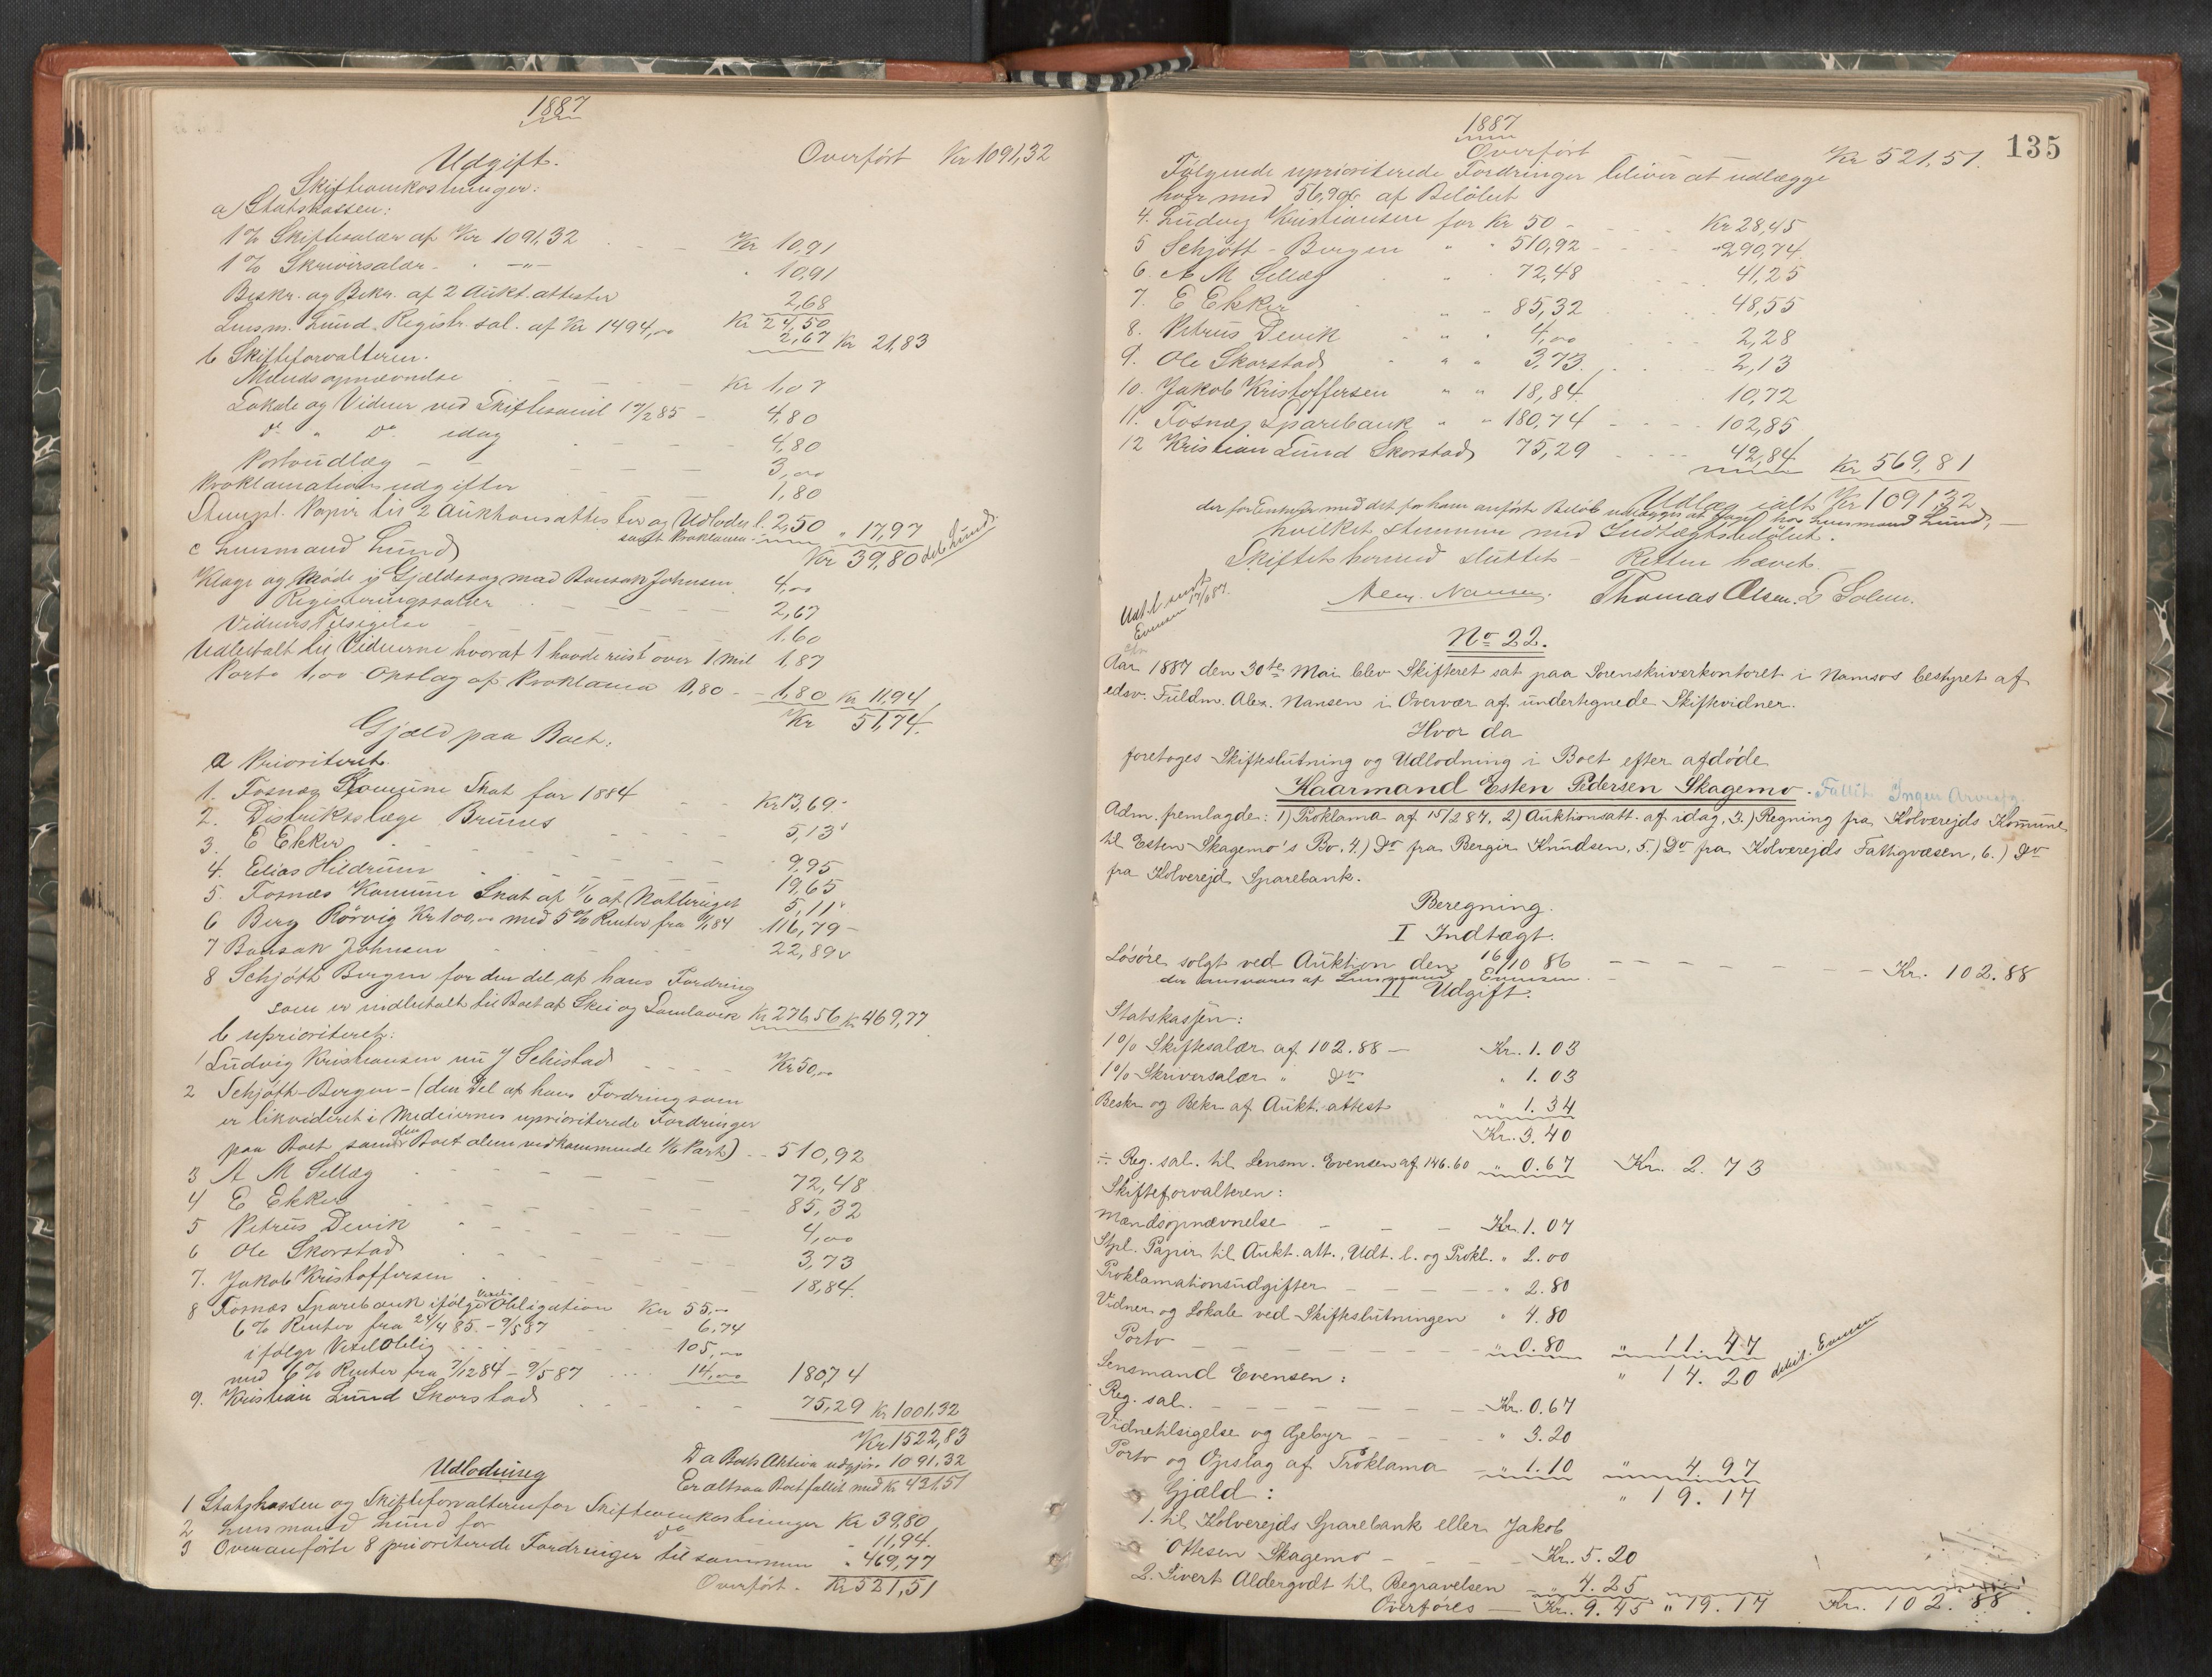 1887
Udgift. Overført Kr 1091,32
Skifteomkostninger:
a) Statskassen:
1% Skiftesalær af Kr 1091,32 - - Kr 10,91
1% Skriversalær - -"- " 10,91
Beskr. og Bekr. af 2 Aukt. attester 2,68
Kr 24,50
Lensm. Lund Registr. sal. af Kr 1494,00 2,67 Kr 21,83
b Skifteforvalteren.
Mændsopnævnelse - - Kr 1,07
Lokale og Vidner ved Skiftesaml 17/2 85 - 4,80
do " do idag - - 4,80
Portoudlæg - - - 3,00
Proklamationsudgifter - - 1,80
Stempl. Papir til 2 Auktionsattester og Udlodn. l. 2,50 " 17,97
samt Proklama
Kr 39,80 deb. Lund.
c Lensmand Lund
Klage og Møde i Gjældssag mod Bonsak Johnsen 4,00
Registreringssalær - - 2,67
Vidners Tilsigelse - - 1.60
Udbetalt til Vidnerne hvoraf 1 havde reist over 1 Mil 1,87
Porto 1,00 Opslag af Proklama 0,80 - - 1,80 Kr 11,94
Kr 51,74.
Gjæld paa Boet:
a Prioriteret.
1. Fosnæs Komune Skat for 1884 - - Kr 13,69
2. Distriktslæge Bruus - - 5,13
3. E Ekker - - 9,95
4. Elias Hildrum - - 19,65
5. Fosnæs Komune Skat af 1/6 af Notbruget 5,11
6 Berg Rörvig Kr 100,00 med 5% Renter fra 1/1 84 116,79 -
7 Bonsak Johnsen - - 22,89
8 Schjött Bergen for den del af hans Fordring
som er indbetalt til Boet af Skei og Domlavik Kr 276,56 Kr 469,77
b uprioriteret:
1 Ludvig Kristiansen nu J Sehistad - - Kr 50,00
2 Schjött-Bergen - (den Del af hans Fordring som
er likvideret i Medeiernes uprioriterede Fordringer
paa Boet samt den Boet alene vedkommende 1/6 Part) - - 510,92
3 A M Sellæg - - 72,48
4 E Ekker - - 85,32
5 Petrus Devik - - 4,00
6 Ole Skorstad - - 3,73
7. Jakob Kristoffersen - - 18,84.
8 Fosnæs Sparebank ifölge Obligation Kr 55,00
6% Renter fra 24/4 85 - 9/5 87 - - 6,74
ifölge Vexeloblig - - 105,00
med 6% Renter fra 7/12 84 - 9/5 87 - - 14,00 180,74
9. Kristian Lund Skorstad - - 75,29 Kr 1001,32
Kr 1522,83
Da Boets Aktiva udgjör 1091,32
Udlodning Er altsaa Boet fallit med Kr 431,51
1 Statskassen og Skifteforvalteren for Skifteomkostninger Kr 39,80
2 Lensmand Lund for do - 11,94.
3 Ovenanførte 8 prioriterede Fordringer tilsammen " 469,77
Overført. Kr 521,51
135
1887
Overført Kr 521,51.
Følgende uprioriterede Fordringer bliver at udlægge
hver med 56,9% af Beløbet
4. Ludvig Kristiansen for Kr 50 - - Kr 28,45
5 Schjött - Bergen " " 510,92 - - 290,74.
6. A M Sellæg " " 72,48 - - 41,25
7. E Ekker " " 85,32 - - 48,55
8. Petrus Devik " " 4,00 - - 2,28
9. Ole Skorstad " " 3,73. - - 2,13
10. Jakob Kristoffersen " " 18,84. 10,72
11. Fosnæs Sparebank " " 180,74 - - 102,85
12 Kristian Lund Skorstad 75,29 - - 42,84 Kr 569,81
Udlæg ialt Kr 1091,32
der for Enhver med det for ham anførte Beløb udlægges at hos Lensmand Lund, -
hvilket stemmer med Indtægtsbeløbet.
Skiftet hermed sluttet - Retten hævet.
Alex. Nansen. Thomas Olsen. L Solem.
Udl. l. sendt
Evensen 17/6 87.
No 22.
Aar 1887 den 30te Mai blev Skifteret sat paa Sorenskriverkontoret i Namsos bestyret af
edsv. Fuldm. Alex. Nansen i Overvær af undertegnede Skiftevidner.
Hvor da
foretoges Skifteslutning og Udlodning i Boet efter afdøde
Kaarmand Esten Pedersen Skagemo. Fallit Ingen Arvinger
Adm. fremlagde: 1) Proklama af 15/2 87, 2) Auktionsatt. af idag, 3.) Regning fra Kolvereids Komune
til Esten Skagemo's Bo, 4.) Do fra Berger Knudsen, 5.) Do fra Kolvereids Fattigvæsen, 6.) Do
fra Kolvereid Sparebank.
Beregning.
I Indtægt.
Løsøre solgt ved Auktion den 16/10 86 - - - Kr. 102.88
der ansvares af Lensmand Evensen.
II Udgift.
Statskassen:
1% Skiftesalær af 102.88 - Kr. 1.03
1% Skriversalær " do " 1.03
Beskr og Bekr af Aukt. attest " 1.34
Kr. 3.40
÷ Reg. sal. til Lensm. Evensen af 146.60 " 0.67 Kr. 2.73
Skifteforvalteren:
Mændsopnævnelse - - Kr. 1.07
Stpl. Papir til Aukt. att., Udt. l. og Prokl. " 2.00
Proklamationsudgifter - - " 2.80
Vidner og Lokale ved Skifteslutningen " 4.80
Porto - - " 0.80 " 11.47
" 14.20 debit. Evensen
Lensmand Evensen:
Reg. sal. - - Kr. 0.67
Vidnetilsigelse og Gebyr - - " 3.20
Porto og Opslag af Proklama - " 1.10 " 4.97
" 19.17
Gjæld:
1. til Kolvereids Sparebank eller Jakob
Ottesen Skagemo - - Kr. 5.20
2. Sivert Aldergodt til Begravelsen " 4.25
Overføres - Kr. 9.45 " 19.17 Kr. 102.88